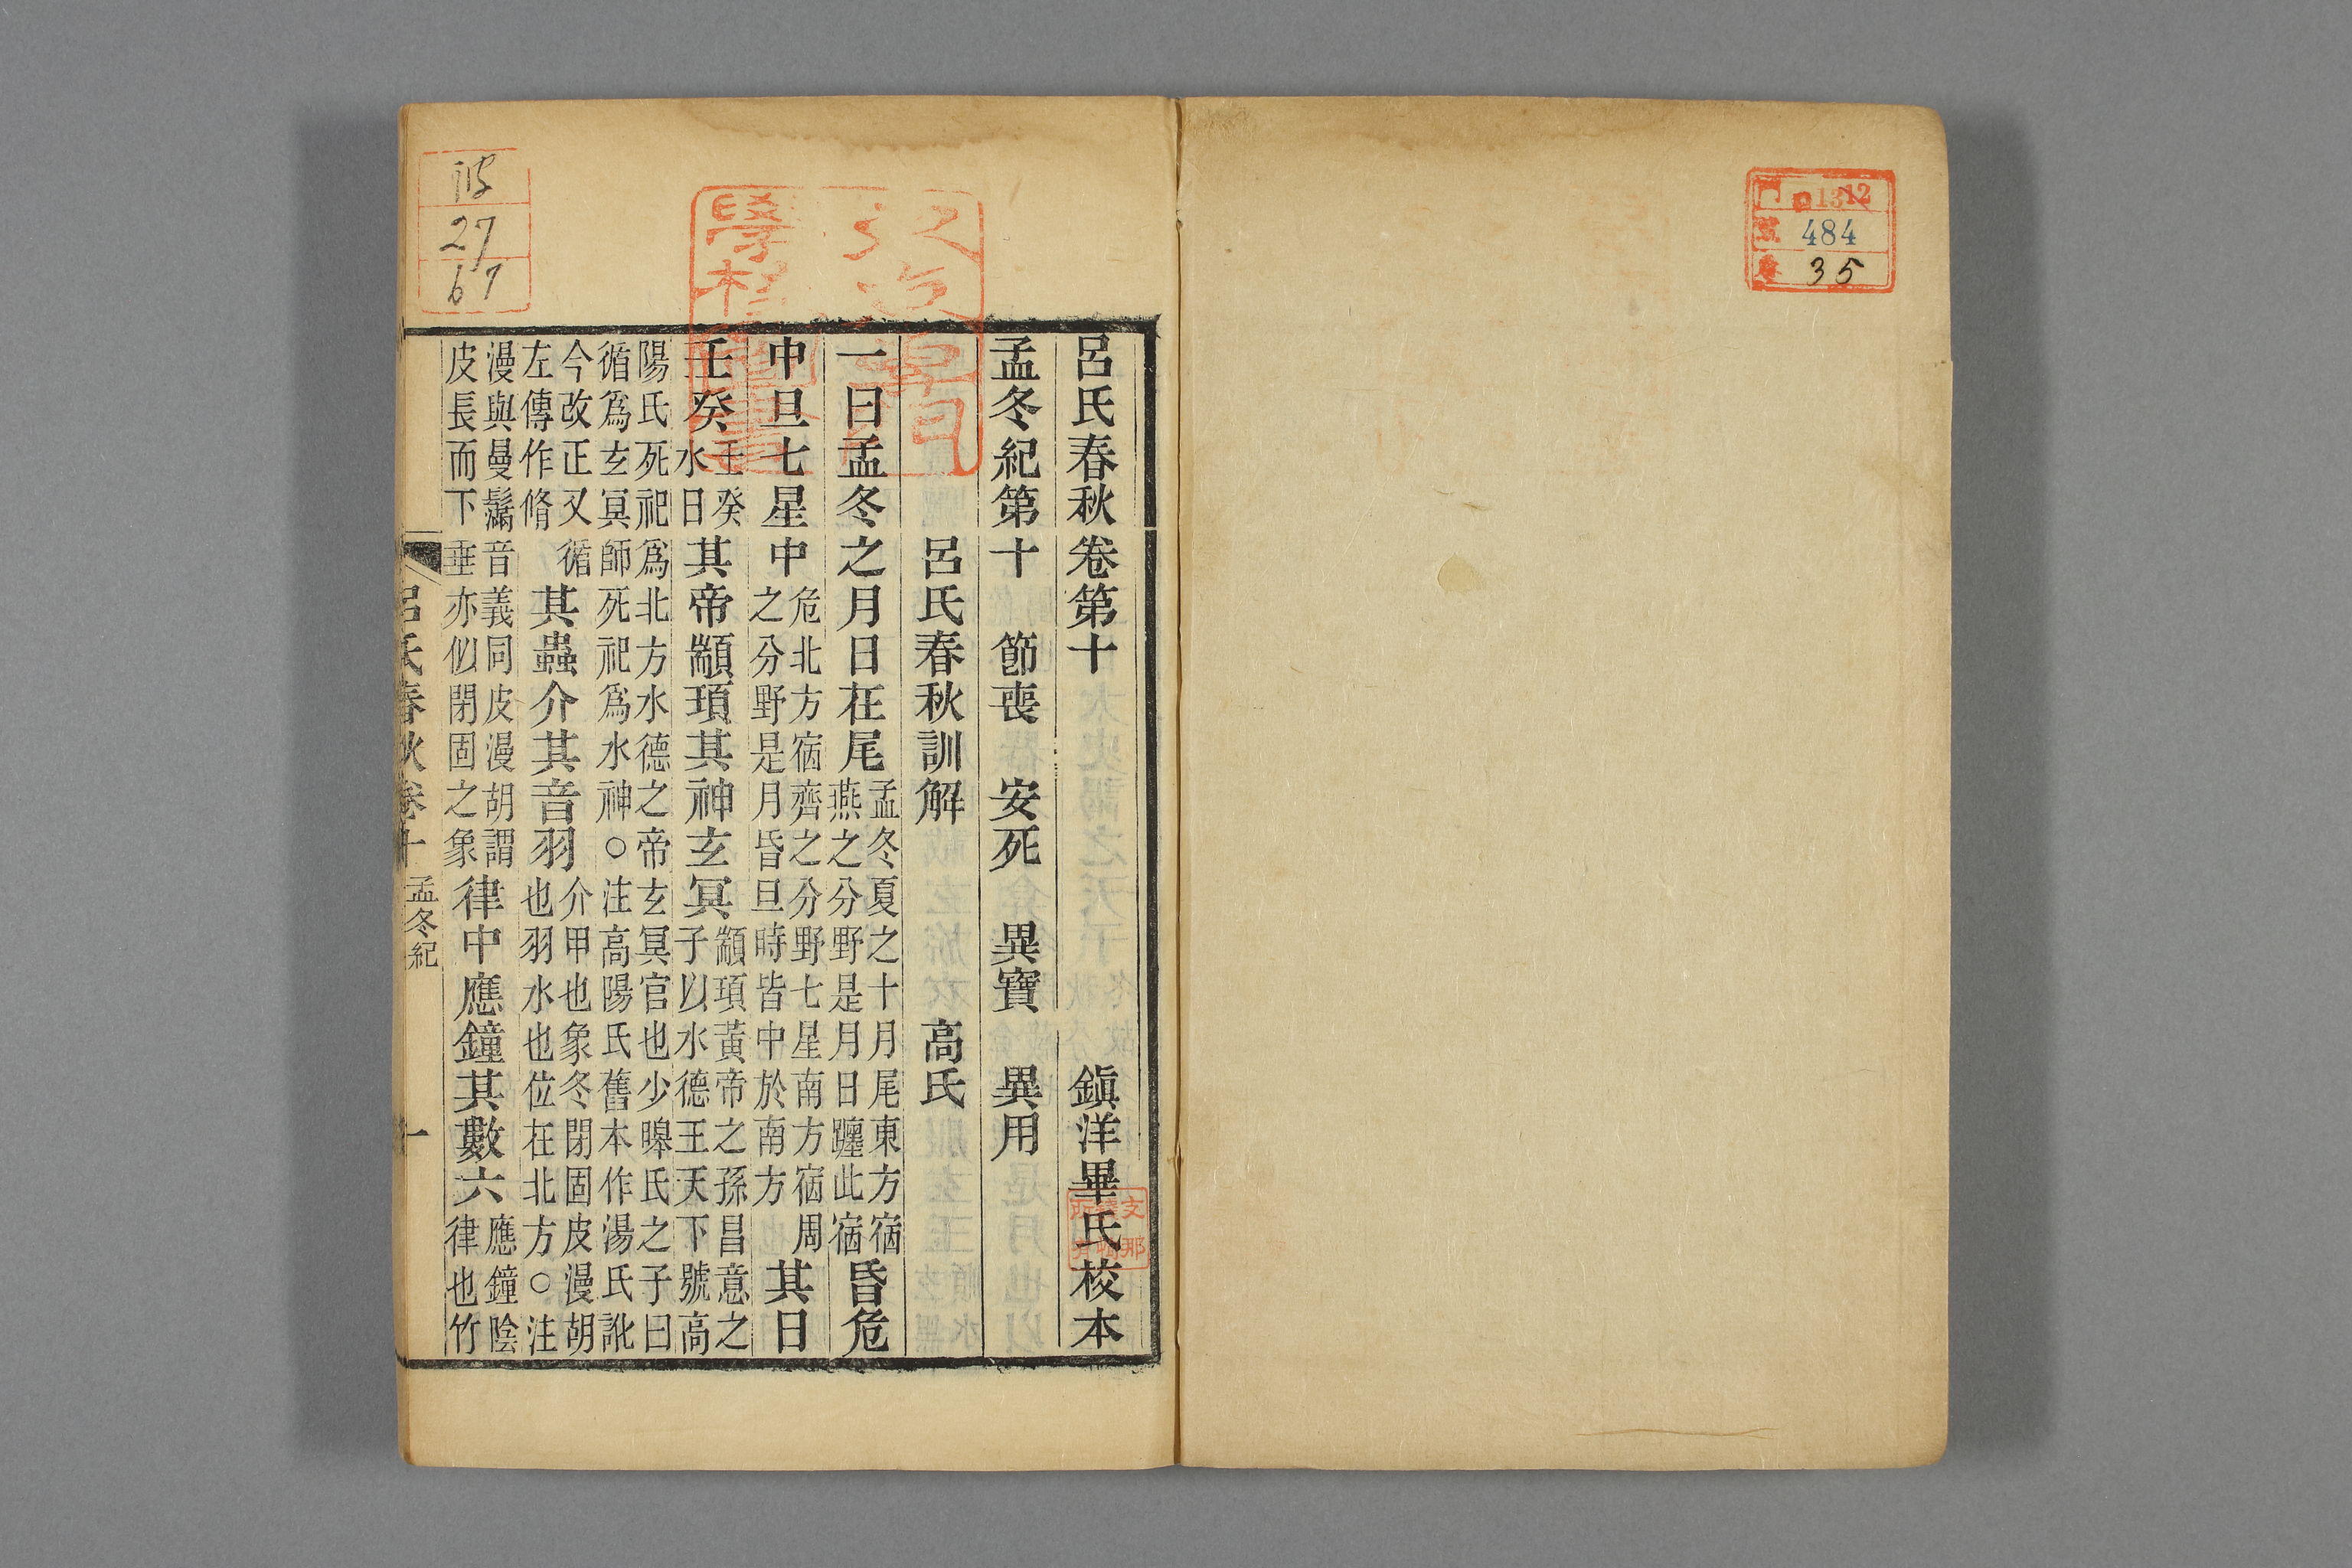 呂氏春秋卷第十 鎭洋畢氏校本
孟冬紀第十 節喪 安死 異寶 異用
呂氏春秋訓解 高氏
一曰孟冬之月日在尾孟冬夏之十月尾東方宿燕之分野是月日躔此宿昏危
中旦七星中危北方宿齊之分野七星南方宿周之分野是月昏旦時皆中於南方其日
壬癸壬癸水日其帝顓頊其神玄冥顓頊黃帝之孫昌意之子以水德王天下號高
陽氏死祀爲北方水德之帝玄冥官也少皞氏之子曰循爲玄冥師死祀爲水神○注高陽氏舊本作湯氏訛
今改正又左傳作脩循其蟲介其音羽介甲也象冬閉固皮漫胡也羽水也位在北方○注
漫與曼鬗音義同皮漫胡謂皮長而下垂亦似閉固之象律中應鐘其數六應鐘陰律也竹
呂氏春秋卷十 孟冬紀 一
27
67
門 1312
號 484
卷 35